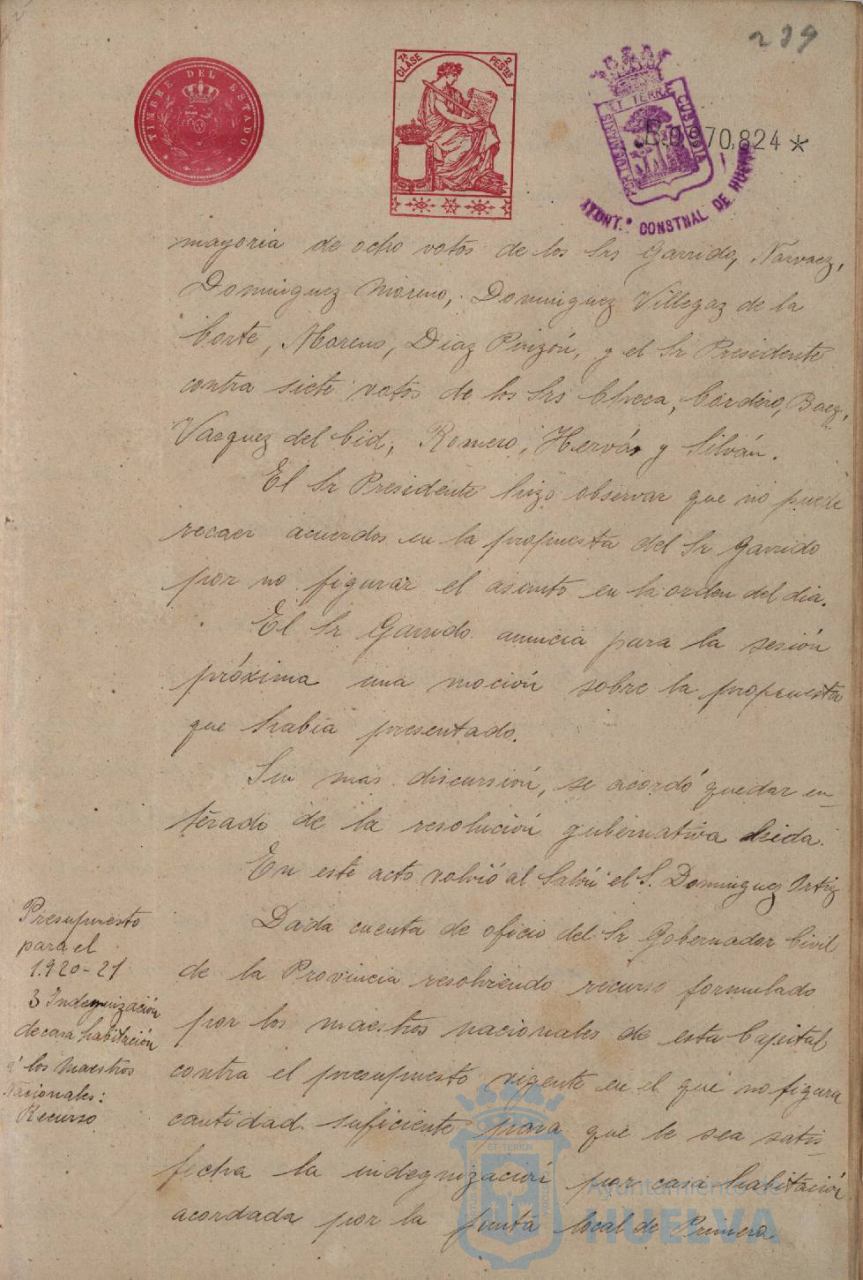 239
TIMBRE DEL ESTADO
7ª CLASE
2 PESTAS
PORTUS MARIS ET TERRÆ CUSTODIA
AYUNT.º CONSTNAL DE HUELVA
B.0.970,824 *
mayoria de ocho votos de los Srs Garrido, Narvaez,
Dominguez Moreno, Dominguez Villegaz de la
Corte, Moreno, Diaz Pinzón, y el Sr Presidente
contra siete votos de los Srs Checa, Cordero, Baez,
Vazquez del Cid, Romero, Hervás y Silván.
El Sr Presidente hizo observar que no puede
recaer acuerdos en la propuesta del Sr Garrido
por no figurar el asunto en la orden del dia.
El Sr Garrido anuncia para la sesión
próxima una moción sobre la propuesta
que habia presentado.
Sin mas discursión, se acordó quedar en-
terado de la resolución gubernativa leida.
En este acto volvió al Salón el S. Dominguez Ortiz
Presupuesto
para el
1.920-21
3 Indegnización
de casa habitación
á los Maestros
Nacionales:
Recurso
Dada cuenta de oficio del Sr Gobernador Civil
de la Provincia resolviendo recurso formulado
por los maestros nacionales de esta Capital
contra el presupuesto vigente en el que no figura
cantidad suficiente para que le sea satis-
fecha la indegnización por casa habitación
acordada por la junta local de Primera
Ayuntamiento de
HUELVA